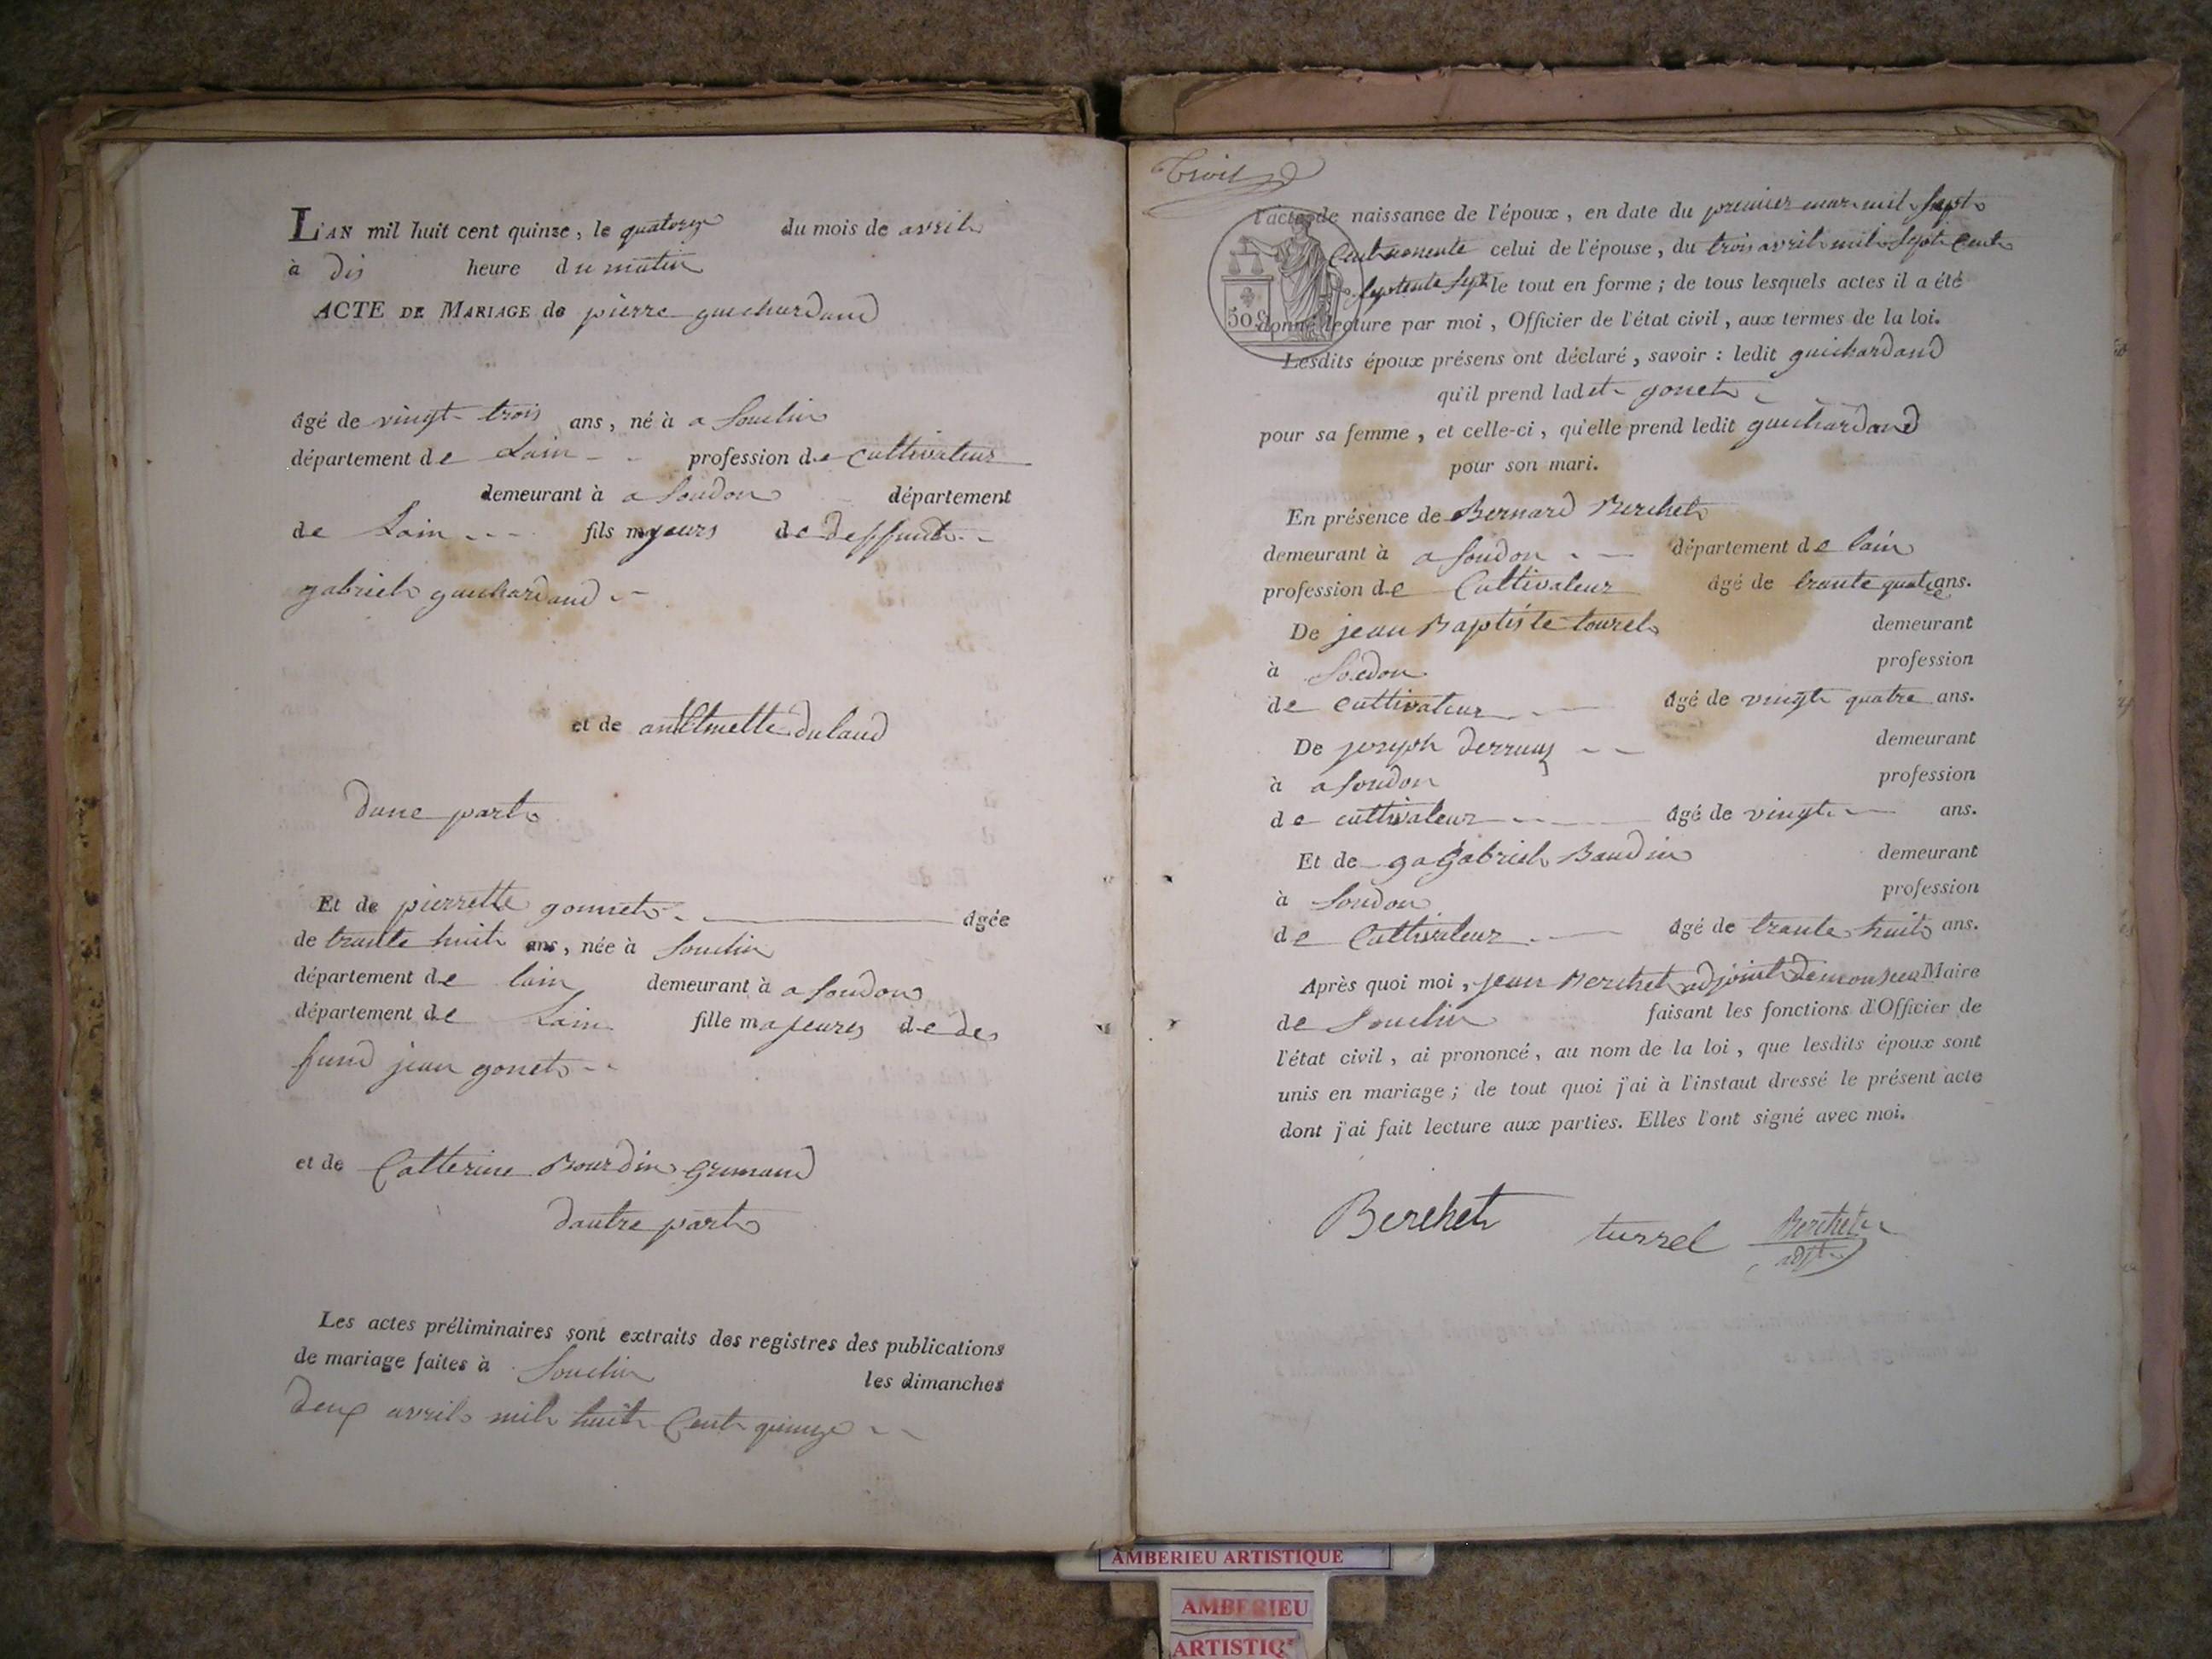 L'AN mil huit cent quinze, le quatorze du mois de avril
à dis heure du matin
ACTE DE MARIAGE de pierre guichardand
âgé de vingt trois ans, né à a Souclin
département de Lain profession de Cultivateur
demeurant à a Soudon département
de Lain fils majeurs de deffunt
gabriel guichardand
et de dulaud
dune part
Et de pierrette gonnet âgée
de trante huit ans, née à Souclin
département de lain demeurant à a Soudon
département de Lain fille majeures de de
funt jean gonet
et de Catterine Bourdin Grumaud
dautre part
Les actes préliminaires sont extraits des registres des publications
de mariage faites à Souclin les dimanches
deux avril mil huit Cent quinze
l'acte de naissance de l'époux, en date du premier mars mil Sept
Cent nonente celui de l'épouse, du trois avril mil Sept Cent
Septente Sept le tout en forme ; de tous lesquels actes il a été
50 C
donné lecture par moi, Officier de l'état civil, aux termes de la loi.
Lesdits époux présens ont déclaré, savoir : ledit guichardand
qu'il prend ladet gonet
pour sa femme, et celle-ci, qu'elle prend ledit guichardand
pour son mari.
En présence de Bernard Berchet
demeurant à a Soudon département de lain
profession de Cultivateur âgé de trante quatre ans.
De jean Baptiste tourel demeurant
à Soudon profession
de cultivateur âgé de vingt quatre ans.
De joseph demeurant
à a Soudon profession
de cultivateur âgé de vingt ans.
Et de ga gabriel Baudin demeurant
à Soudon profession
de Cultivateur âgé de trante huit ans.
Après quoi moi, jean Berchet adjoint de monsieu Maire
de Souclin faisant les fonctions d'Officier de
l'état civil, ai prononcé, au nom de la loi, que lesdits époux sont
unis en mariage ; de tout quoi j'ai à l'instaut dressé le présent acte
dont j'ai fait lecture aux parties. Elles l'ont signé avec moi.
Berchet turrel Berchet
adjt
AMBERIEU ARTISTIQUE
AMBERIEU
ARTISTIQ